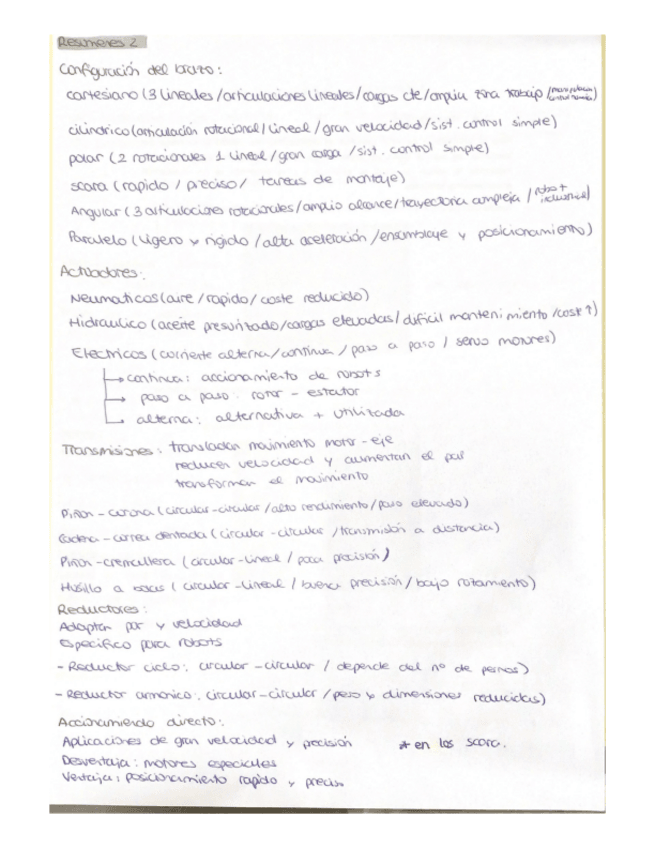 Resumenes 2
Configuración del brazo:
cartesiano (3 lineales / articulaciones lineales / cargas de / amplia zona trabajo /
cilindrico (articulación rotacional / lineal / gran velocidad / sist. control simple)
polar (2 rotacionales 1 lineal / gran carga / sist. control simple)
scara (rapido / preciso / tareas de montaje)
Angular (3 articulaciones rotacionales / amplio alcance / trayectoria compleja / robot + industrial)
Paralelo (ligero y rigido / alta aceleración / ensamblaje y posicionamiento)
Actuadores:
Neumaticos (aire / rapido / coste reducido)
Hidraulico (aceite presurizado / cargas elevadas / dificil mantenimiento / coste ↑)
Electricos (corriente alterna / continua / paso a paso / servo motores)
→ continua: accionamiento de robots
→ paso a paso: rotor - estator
→ alterna: alternativa + utilizada
Transmisiones: transladan movimiento motor - eje
reducen velocidad y aumentan el par
transforman el movimiento
Piñon - corona (circular - circular / alto rendimiento / paso elevado)
Cadena - correa dentada (circular - circular / transmisión a distancia)
Piñon - cremallera (circular - lineal / poca precisión)
Husillo a bolas (circular - lineal / buena precisión / bajo rozamiento)
Reductores:
Adaptan par y velocidad
Especifico para robots
- Reductor ciclo: circular - circular / depende del nº de pernos)
- Reductor armonico: circular - circular / peso y dimensiones reducidas)
Accionamiento directo:
Aplicaciones de gran velocidad y precisión * en los scara.
Desventaja: motores especiales
Ventaja: posicionamiento rapido y preciso